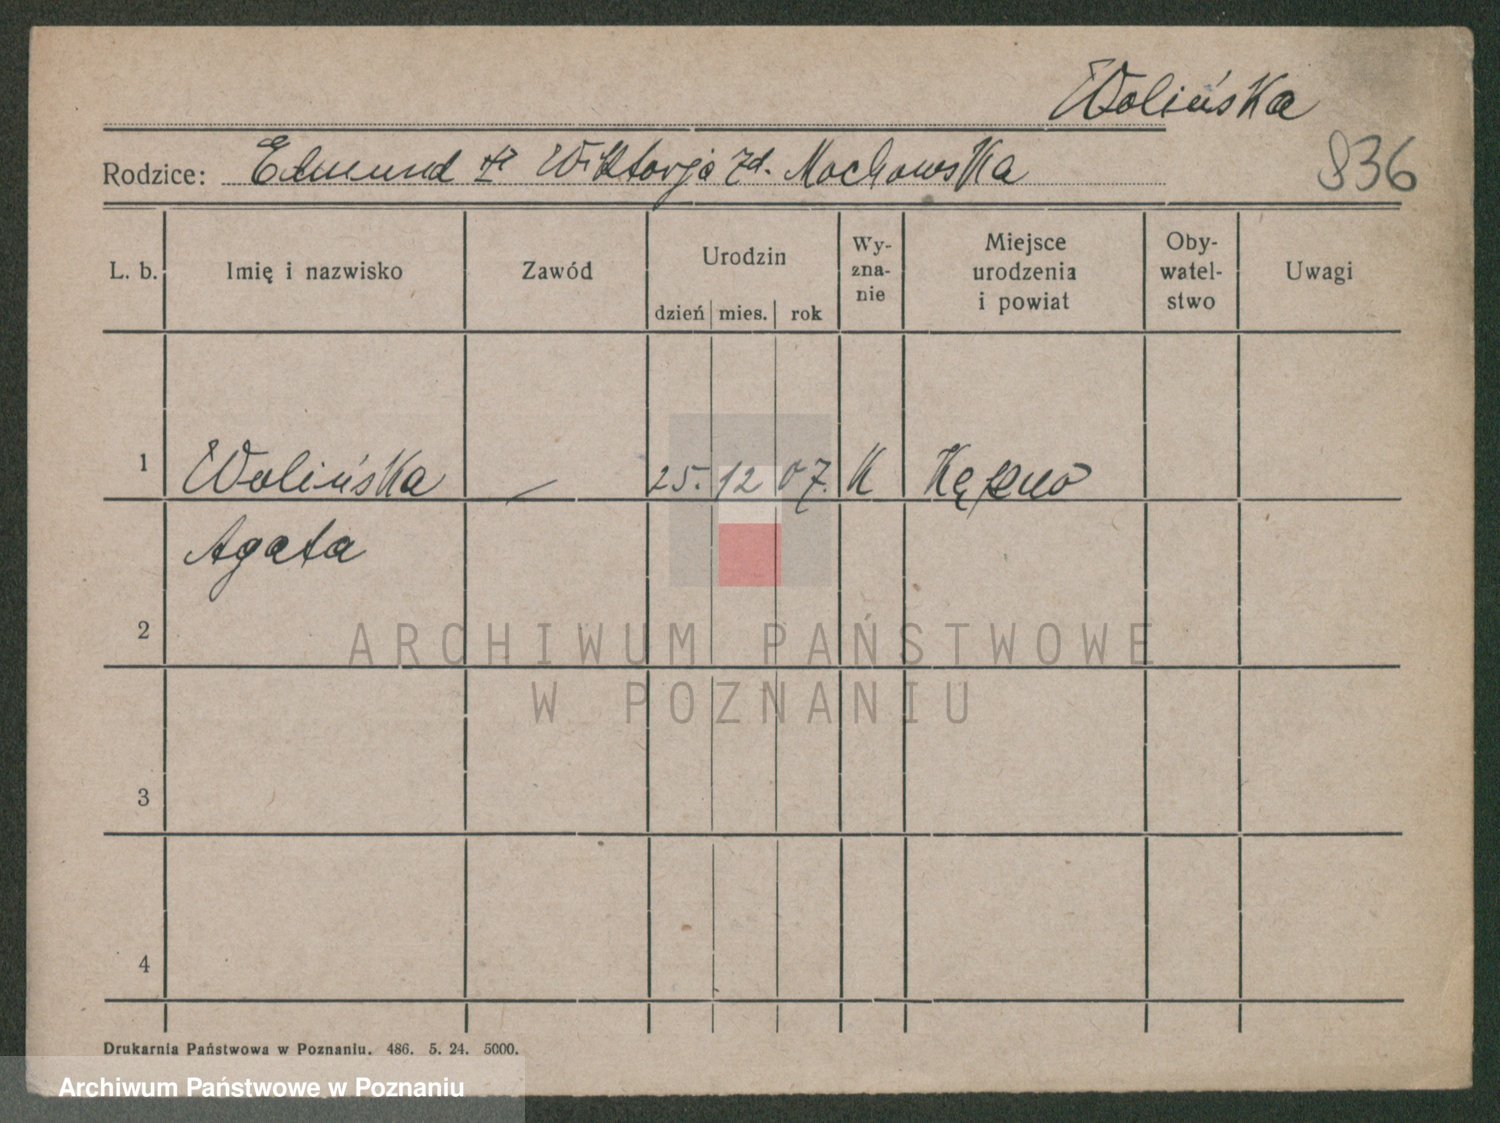 Wolińska
Rodzice: Edmund i Wiktorja zd. Mochowska
836
L. b. Imię i nazwisko Zawód Urodzin dzień mies. rok Wy-zna-nie Miejsce urodzenia i powiat Oby-watel-stwo Uwagi
1 Wolińska — 25. 12 07. K Kępno
Agata
2
ARCHIWUM PAŃSTWOWE
W POZNANIU
3
4
Drukarnia Państwowa w Poznaniu. 486. 5. 24. 5000.
Archiwum Państwowe w Poznaniu